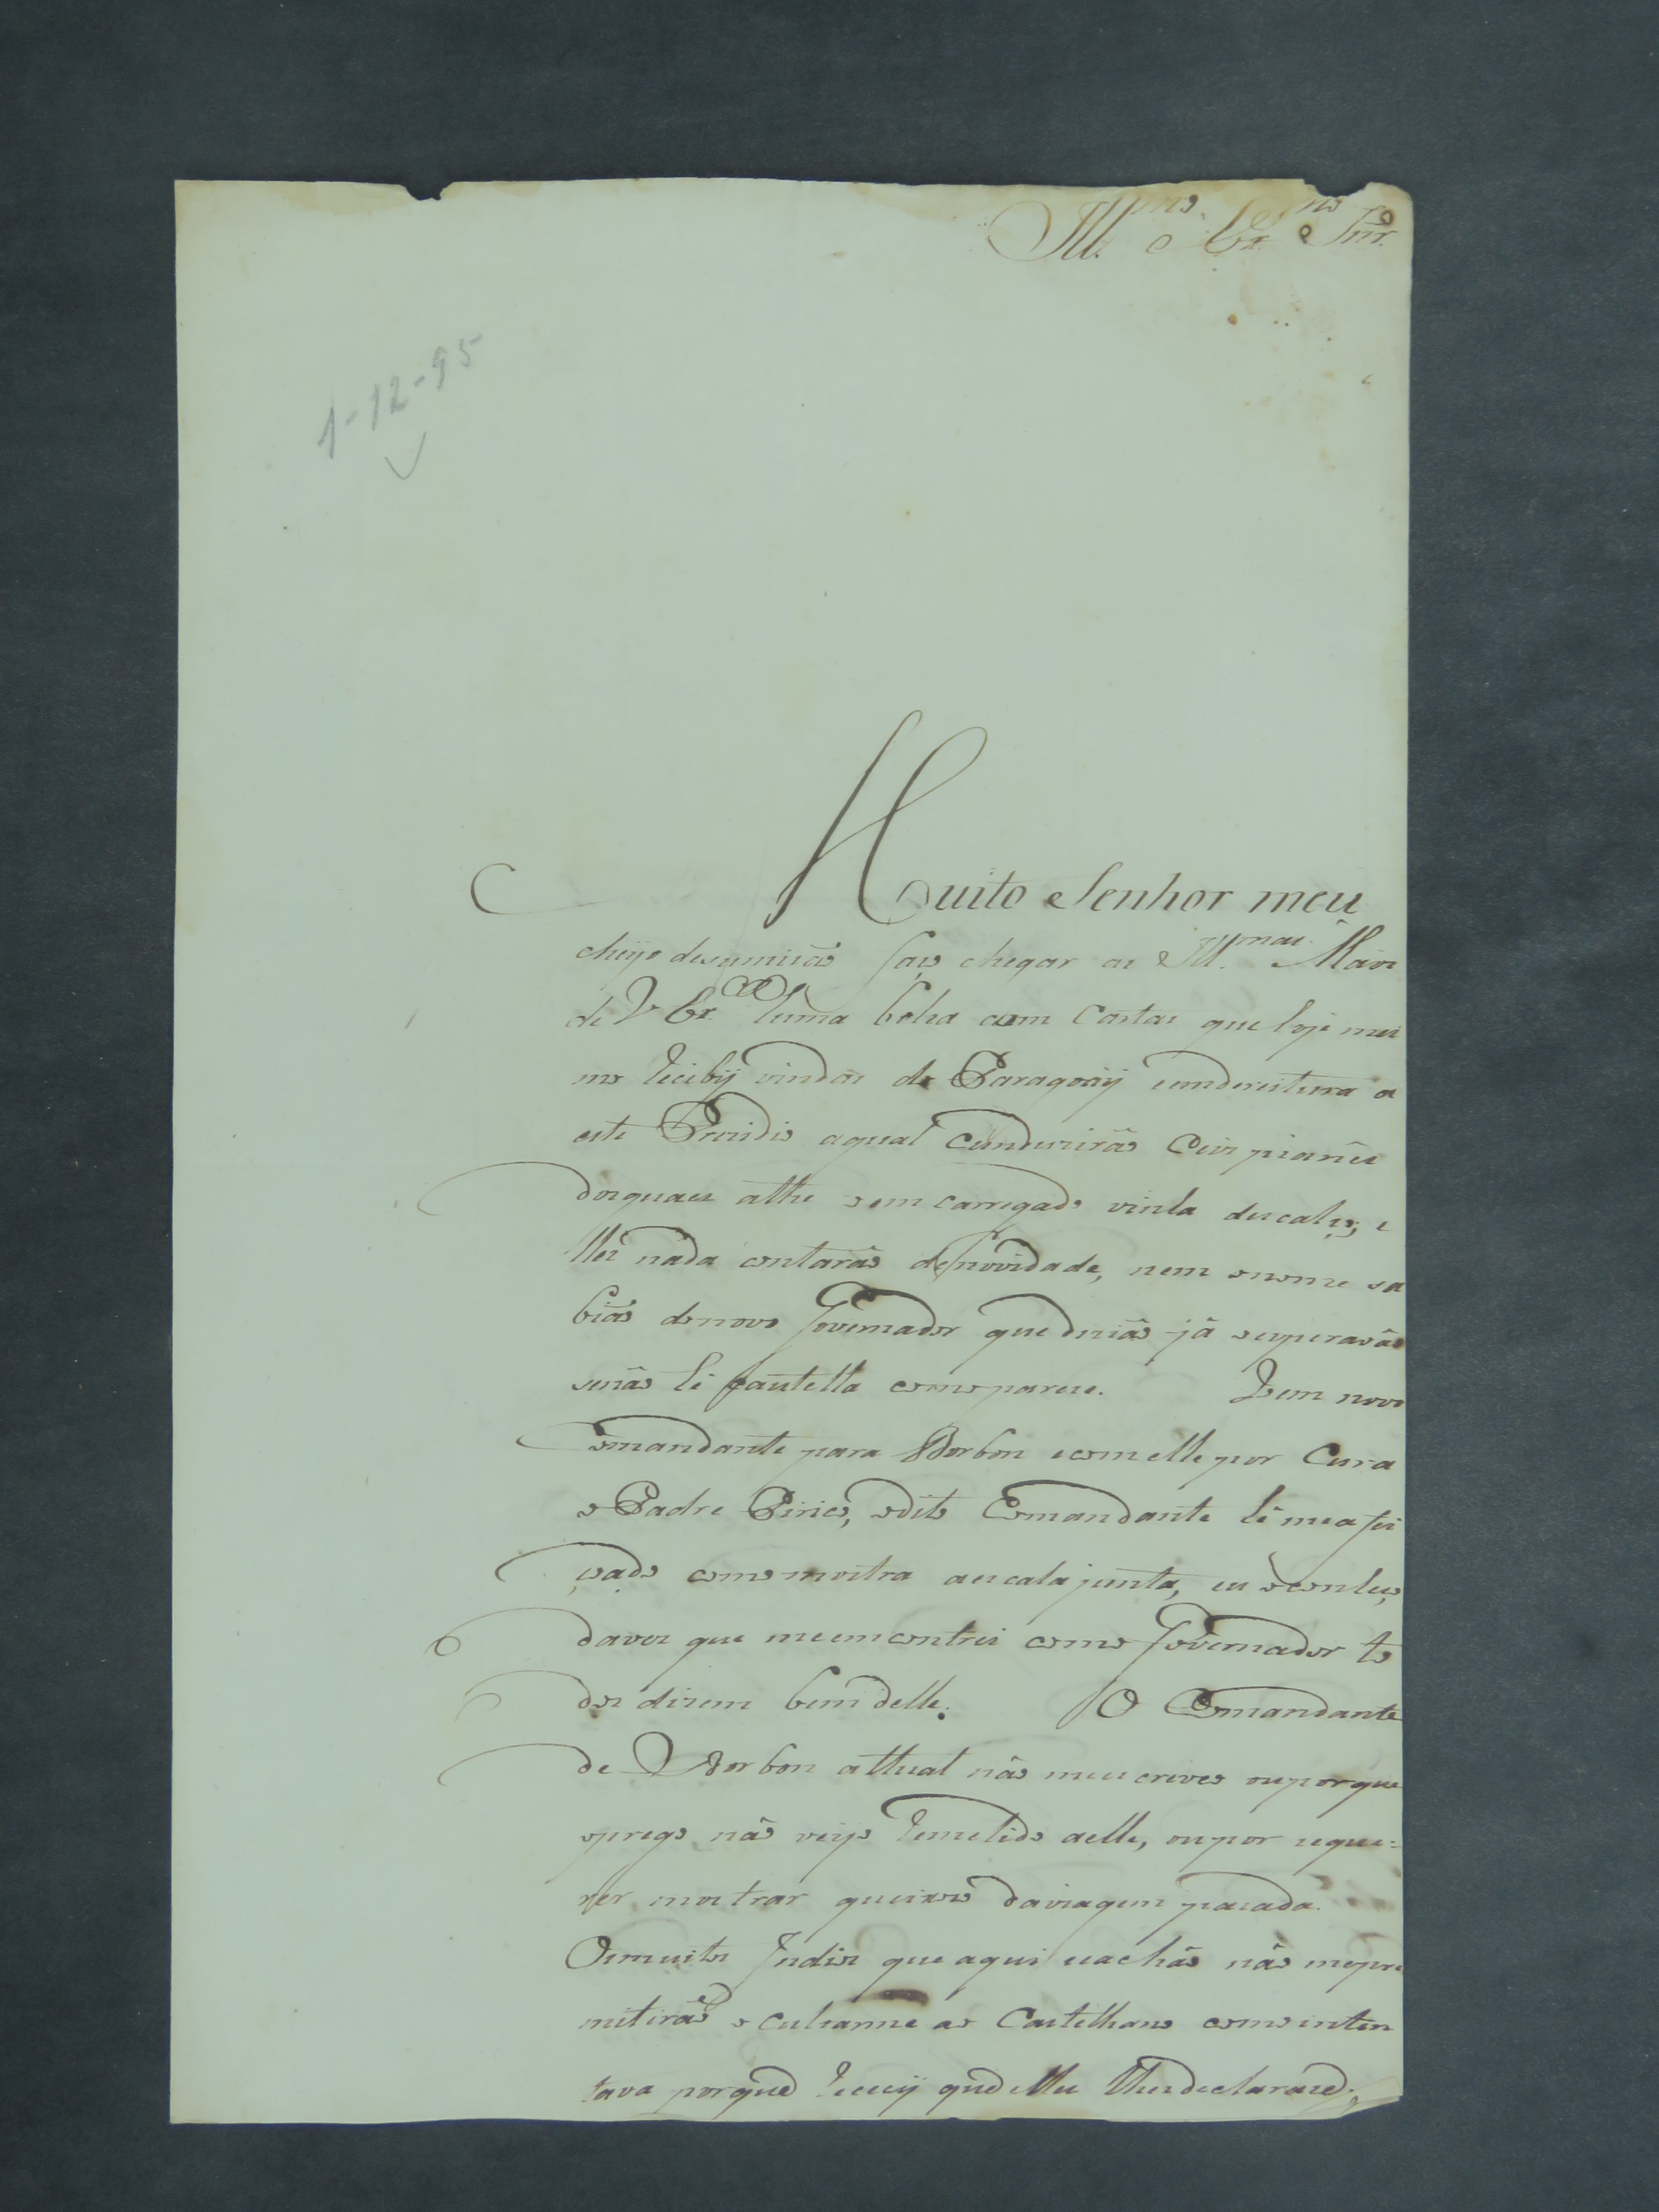 Ill.mo e Ex.mo Snr.
1-12-95
Muito Senhor meu
cheyo desumiçaõ faço chegar as Ill.mas Maõs
de V Ex.a huma bolça com Cartas que hoje mes
mo recibÿ vindas do Paragoaÿ emdereitura a
este Prezidio aqual cunduziraõ Seis pianes
dosquaes athe o emcarregado vinha descalço, e
lles nada contaraõ denovidade, nem onome sa
biaõ donovo Governador que diziaõ já oesperavaõ
senaõ hé cautella como parece. Vem novo
Comandante para Borbon ecomelle por Cura
o Padre Pirico, odito Comandante hé meafei
çoado como mostra aescala junta, eu oconheço
davez que meemcontrei como Governador to
dos dizem bem delle. O Comandante
de Borbon athual naõ meescreveo ouporque
oprego naõ veijo remetido aelle, oupor seque=
rer mostrar queixozo daviagem pasada.
Osmuitos Indios que aqui seachaõ naõ mepre
mitiraõ ocultarme aos Castelhanos como inten
tava porque receey que elles lhesdeclarase